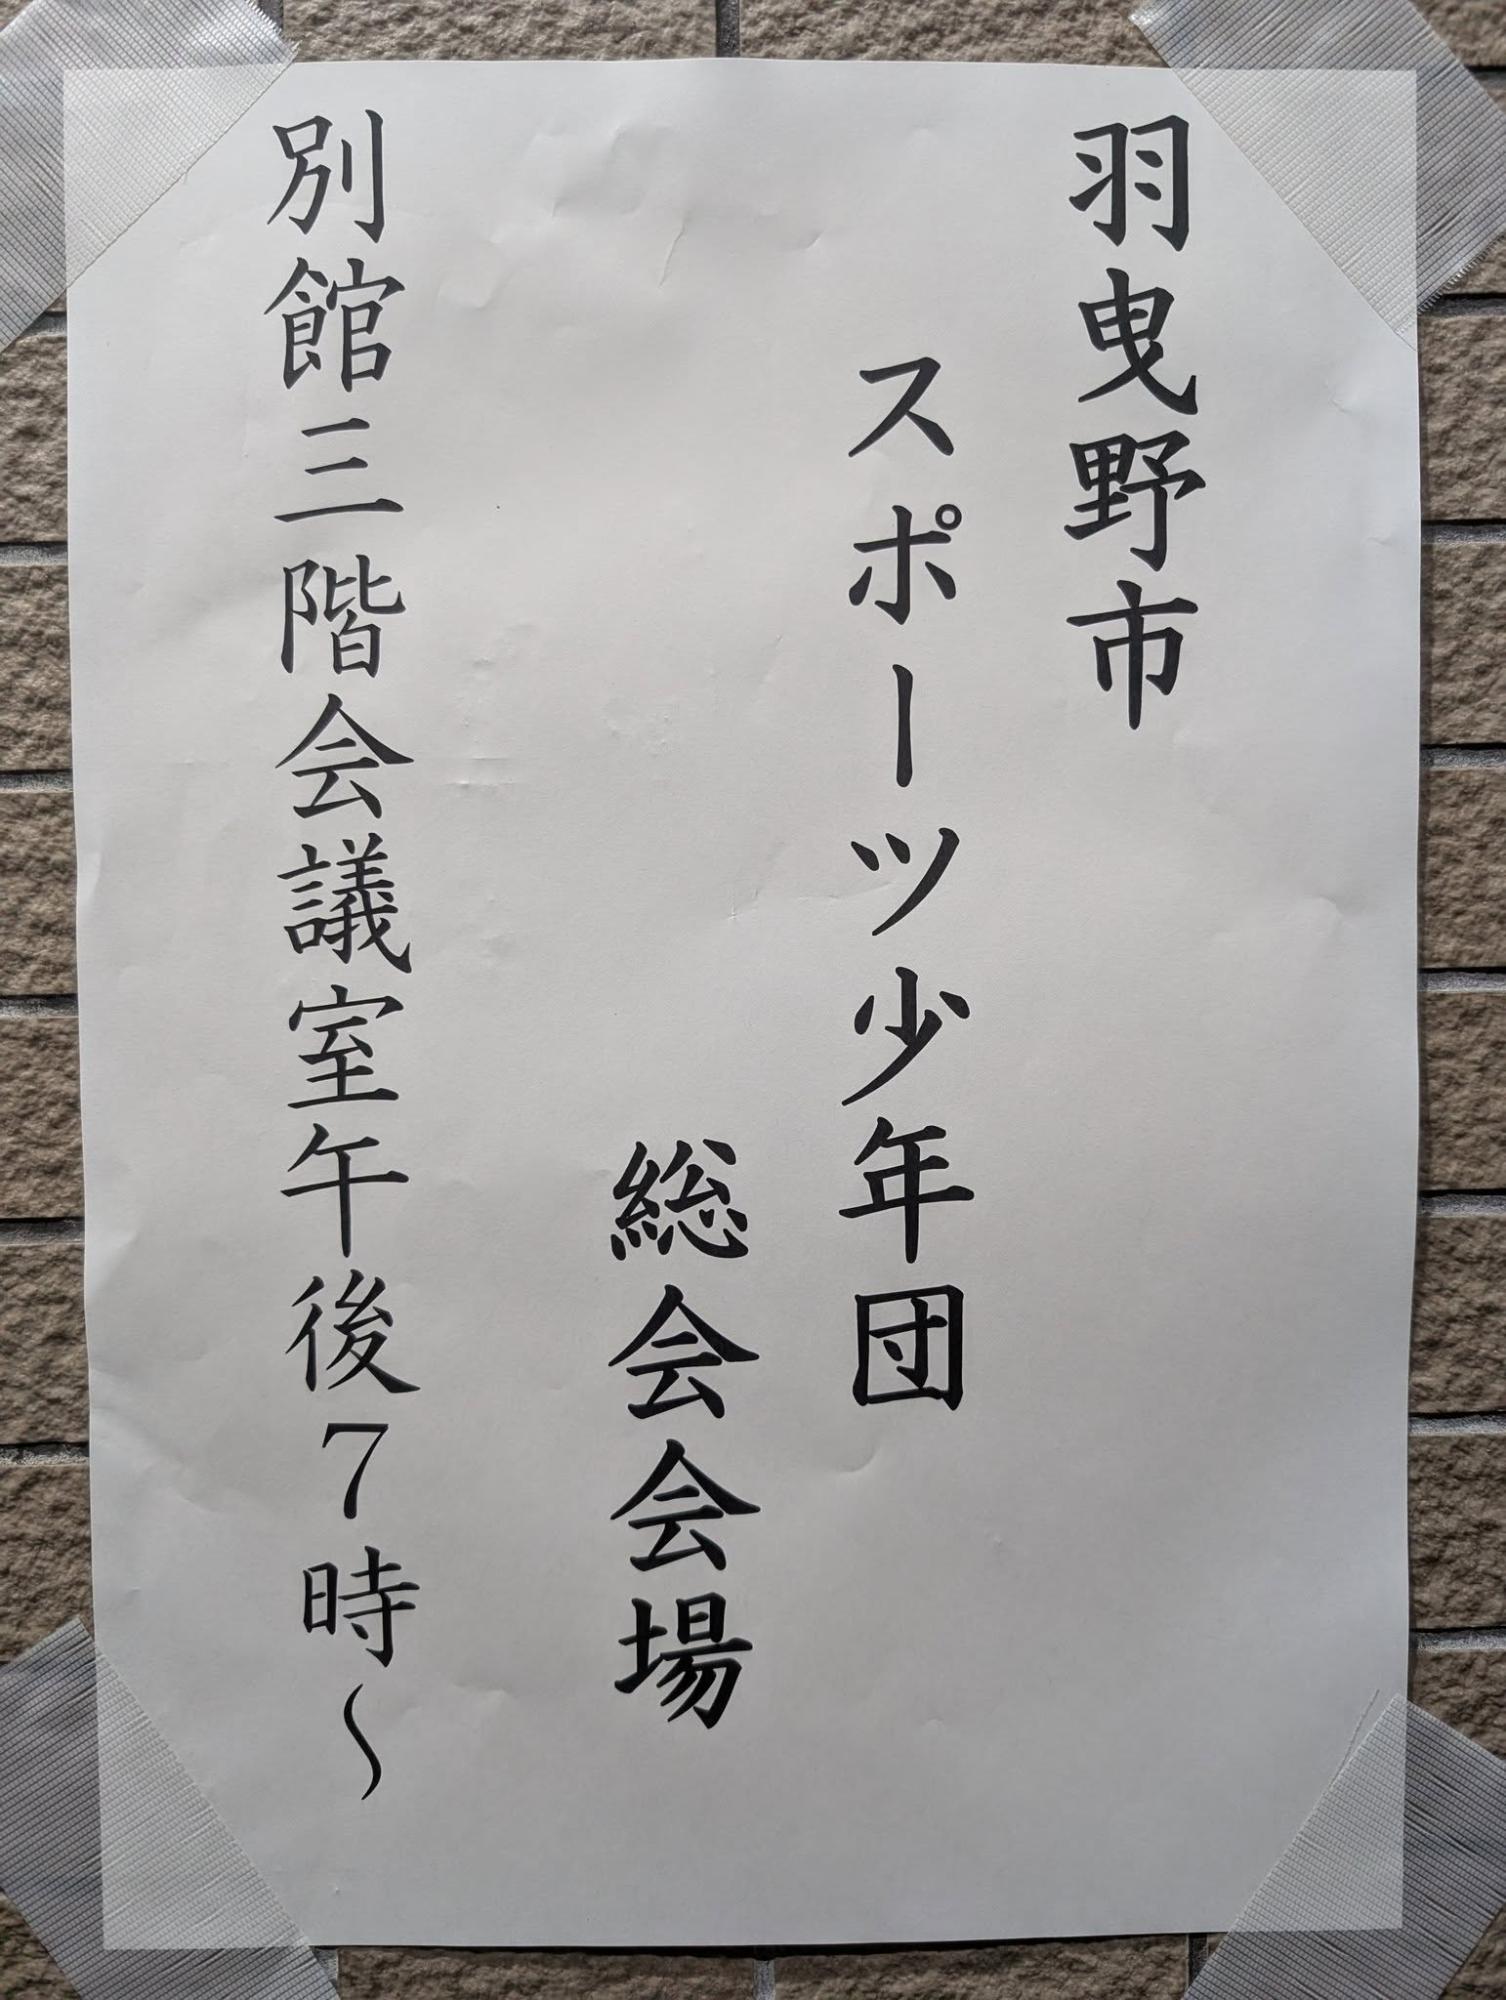 羽曳野市
スポーツ少年団
総会会場
別館三階会議室午後7時～